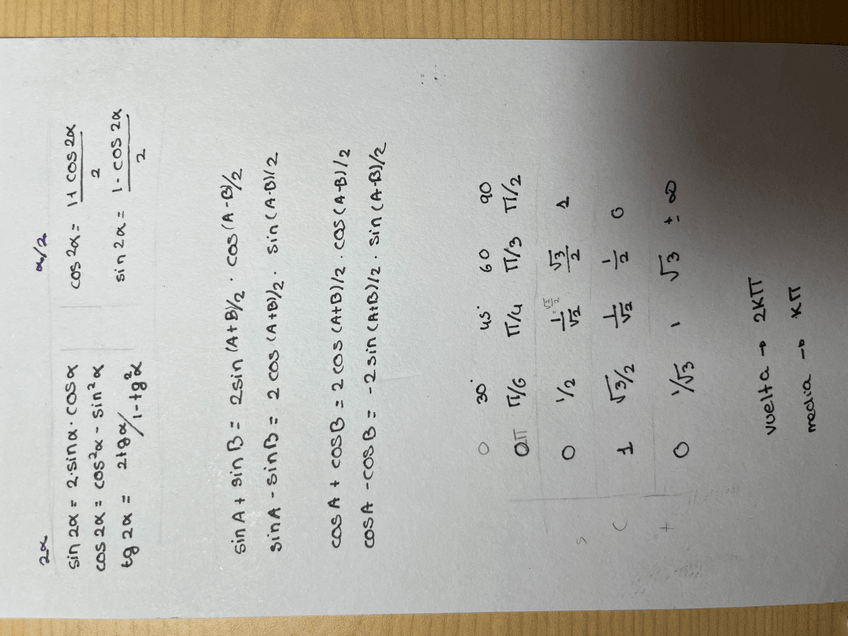 2α α/2
sin 2α = 2·sinα·cosα cos 2α = 1+ cos 2α / 2
cos 2α = cos²α - sin²α sin 2α = 1 - cos 2α / 2
tg 2α = 2tgα / 1-tg²α
sin A + sin B = 2 sin (A+B)/2 · cos (A-B)/2
sin A - sin B = 2 cos (A+B)/2 · sin (A-B)/2
cos A + cos B = 2 cos (A+B)/2 · cos (A-B)/2
cos A - cos B = -2 sin (A+B)/2 · sin (A-B)/2
0 30° 45° 60 90
0π π/6 π/4 π/3 π/2
s 0 1/2 1/√2 √3/2 1
c 1 √3/2 1/√2 1/2 0
t 0 1/√3 1 √3 ± ∞
vuelta → 2kπ
media → kπ